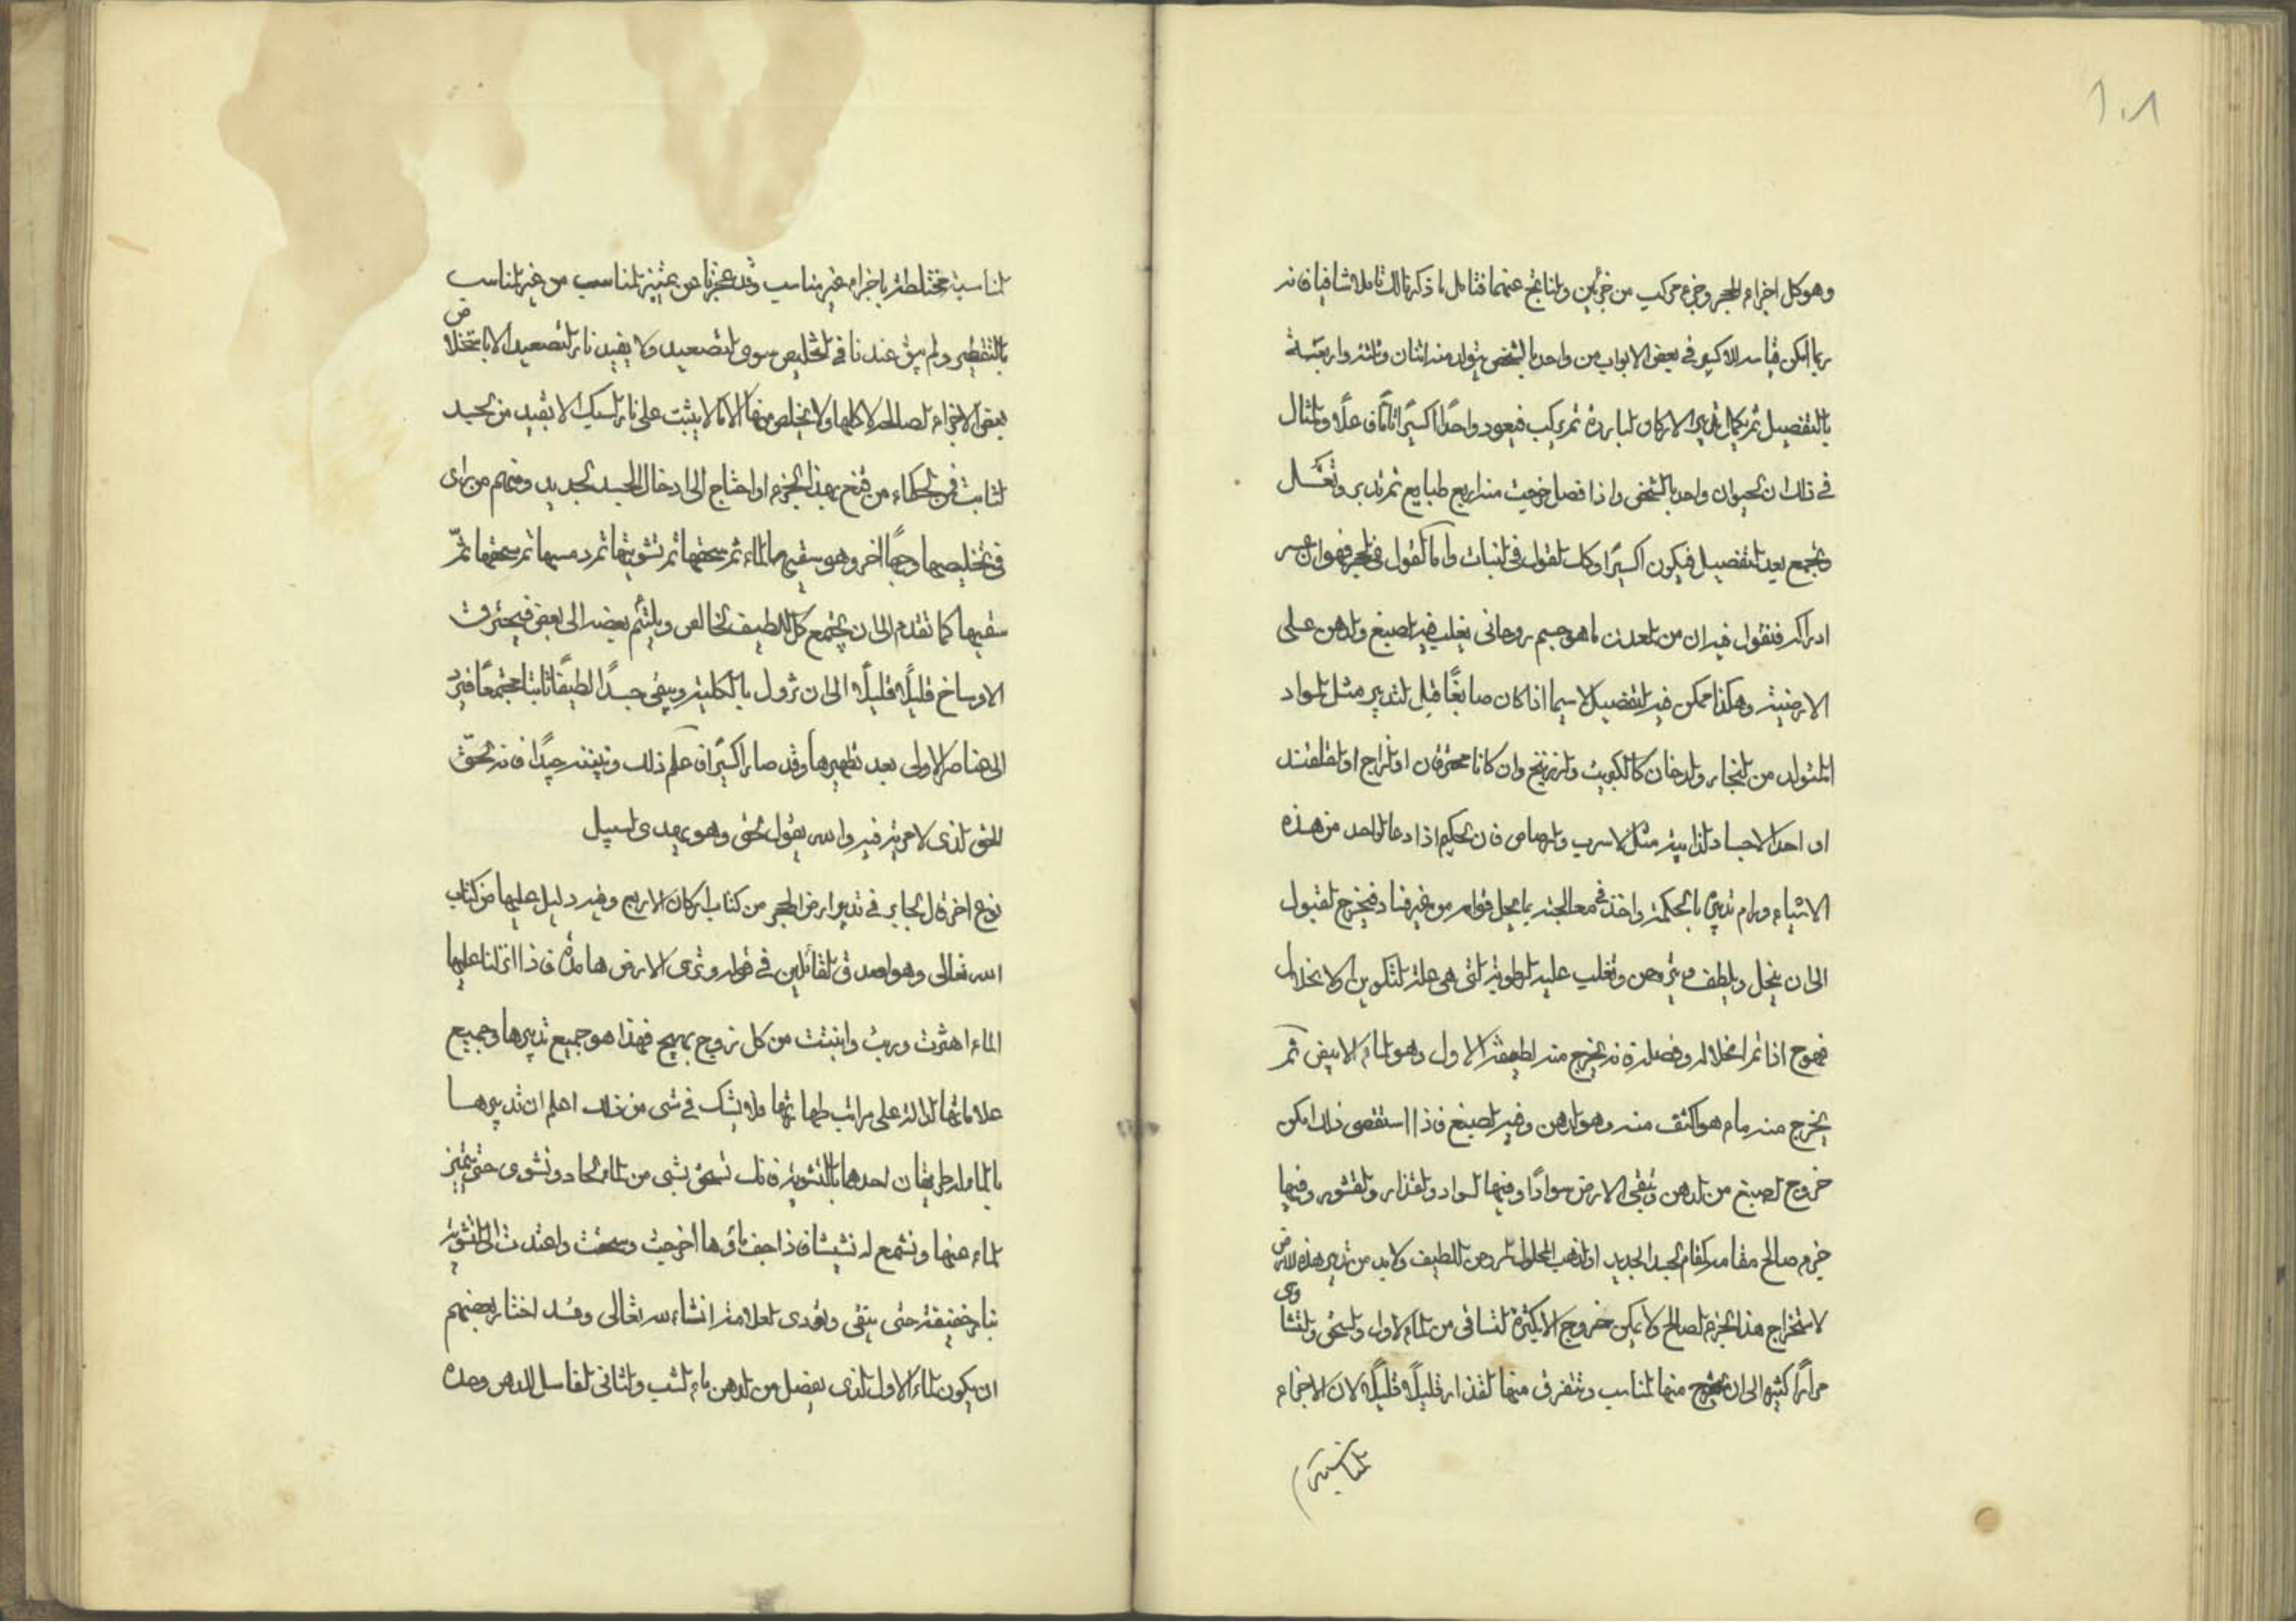 ١٠٨
وهو كل اجزاء الحجر وجزء مركب من جزئين والناتج عنهما فتامل ما ذكرنا لك تاملا شافيا فانه
ربما امكن قياسه الاكسير في بعض الابواب من واحد بالشخص يتولد منه اثنان وثلثة واربعة
بالتفصيل ثم يكمال تدبير الاركان الباردة ثم يركب فيعود واحدًا اكسيرًا تامًا فعلًا والمثال
في ذلك ان الحيوان واحد بالشخص واذا فصل خرجت منه اربع طبايع ثم تدبر وتعسل
وتجمع بعد التفصيل فيكون اكسيرًا وكك القول في النبات واما القول في الحجر فهو ان عسر
ادراكه فنقول فيه ان من المعدن ما هو جسم روحاني يغلب فيه الصبغ والدهن على
الارضية وهكذا ممكن فيه التفصيل لا سيما اذا كان صابغًا قبل التدبير مثل المواد
المتولد من البخار والدخان كالكبريت والزرنيخ وان كانا محترقان او الزاج او القلقند
او احد الاجساد الذائبة مثل الاسرب والرصاص فان الحكيم اذا دعا لواحد من هذه
الاشياء ورام تدبيره بالحكمة واخذ في معالجته بما يحل قوامه من غير فساد فيخرج لقبول
الى ان ينحل ويلطف ويتروحن وتغلب عليه الرطوبة التي هي علة التكوين والانحلال
فهو ح اذا تم انحلاله وفصل فانه يخرج منه لطيفة الاول وهو الماء الابيض ثم
يخرج منه ماء هو اكثف منه وهو الدهن وفيه الصبغ فاذا استقصى ذلك امكن
خروج الصبغ من الدهن وتبقى الارض سوادًا وفيها السواد والقذار والقشور وفيها
جزء صالح مقامه كمقام الجسد الجديد او الذهب المحلول المروحن اللطيف ولا بد من تدبير هذه الارض
لاستخراج هذا الجزء الصالح ولا يمكن خروجه الا بكثرة التساقي من الماء الاول والسحق والتشاوى
مرارًا كثيرة الى ان يخرج منها المناسب وتتفرق منها القذار قليلًا قليلًا لان الاجزاء
المناسبة
المناسبة مختلطة باجزاء غير مناسب وقد عجزنا عن تمييز المناسب من غير المناسب
بالتقطير ولم يبق عندنا في التخليص سوى التصعيد ولا يفيدنا بالتصعيد الا باستخلاص
بعض الاجزاء الصالحة لا كلها ولا يخلص منها الا ما لا يثبت على نار السبك الا بقيد من الجسد
الثابت فمن الحكماء من قنع بهذا الجزء او احتاج الى ادخال الجسد الجديد ومنهم من راى
في تخليصها وجهًا اخر وهو سقيها الماء ثم سحقها ثم تشويتها ثم دمسها ثم سحقها ثم
سقيها كما تقدم الى ان يجتمع كل اللطيف الخالص ويلتئم بعضه الى بعض فيحترق
الاوساخ قليلًا قليلًا الى ان تزول بالكلية ويبقى جسدًا لطيفًا ثابتا مجتمعًا فيرد
الى عناصره الاولى بعد تطهيرها وقد صار اكسيرًا فاعلم ذلك وتبينه جيدًا فانه الحق
الحق الذي لا مرية فيه والله يقول الحق وهو يهدي السبيل
نوع اخر قال الجابر في تدبير ارض الحجر من كتاب اركان الاربع وفيه دليل عليها من كتاب
الله تعالى وهو اصدق القائلين في قوله وترى الارض هامدة فاذا انزلنا عليها
الماء اهتزت وربت وانبتت من كل زوج بهيج فهذا هو جميع تدبيرها وجميع
علاماتها الدالة على مراتب طهارتها فلا يشك في شى من ذلك اعلم ان تدبيرها
بالماء له طريقان احدهما بالتشوية فانك تسحق بشى من الماء الحاد وتشوى حتى يتميز
الماء عنها وتسمع له نشيشا فاذا جف ماؤها اخرجت وسحقت واعيدت الى التشوية
بنار خفيفة حتى يبقى ويؤدى العلامة انشاء الله تعالى وقد اختار بعضهم
ان يكون الماء الاول الذي يفصل من الدهن ماء الشب والثاني الغاسل للدهن وحده